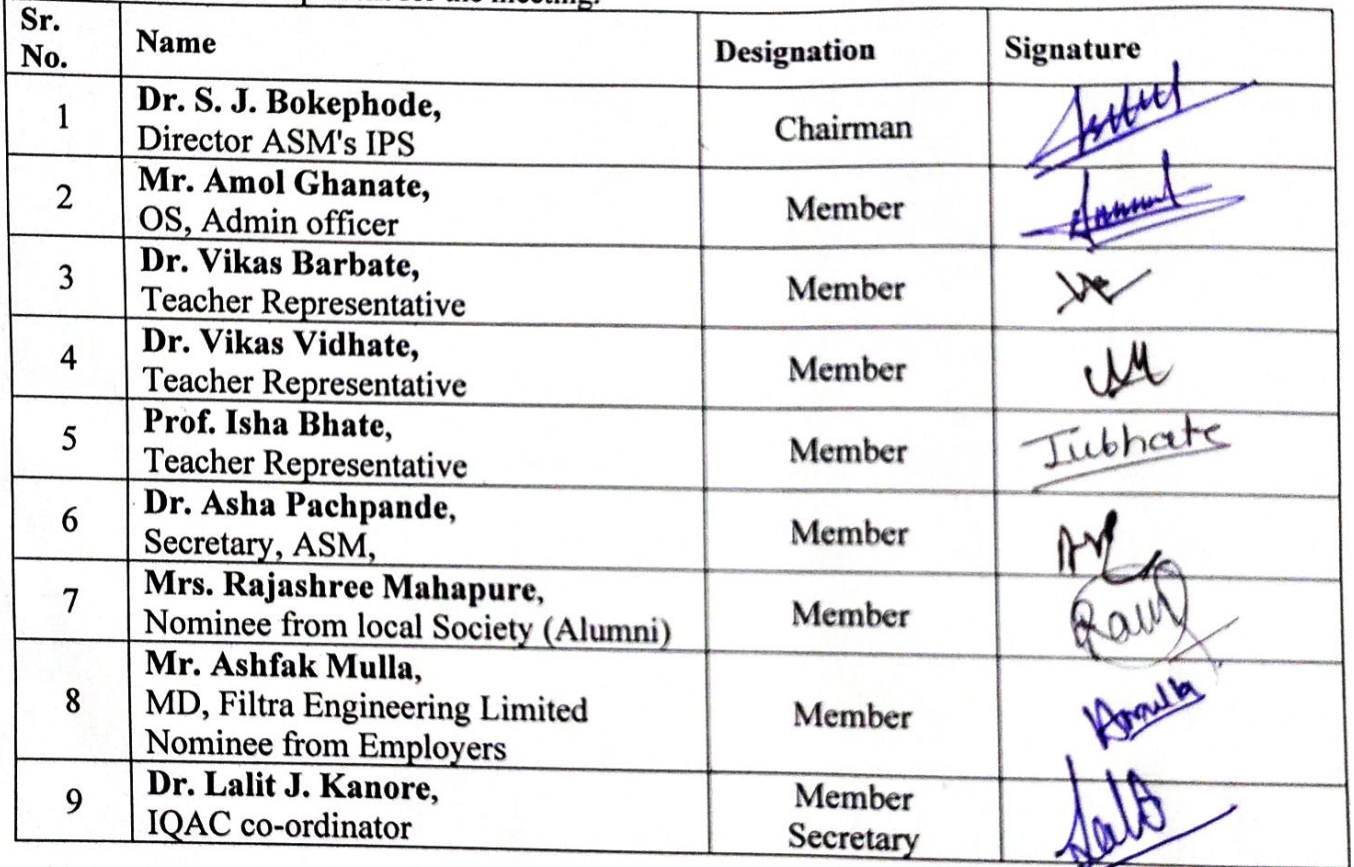 for the meeting.
Sr.
No.
Name
Designation
Signature
1
Dr. S. J. Bokephode,
Director ASM's IPS
Chairman
2
Mr. Amol Ghanate,
OS, Admin officer
Member
3
Dr. Vikas Barbate,
Teacher Representative
Member
4
Dr. Vikas Vidhate,
Teacher Representative
Member
5
Prof. Isha Bhate,
Teacher Representative
Member
Iubhate
6
Dr. Asha Pachpande,
Secretary, ASM,
Member
7
Mrs. Rajashree Mahapure,
Nominee from local Society (Alumni)
Member
8
Mr. Ashfak Mulla,
MD, Filtra Engineering Limited
Nominee from Employers
Member
9
Dr. Lalit J. Kanore,
IQAC co-ordinator
Member
Secretary